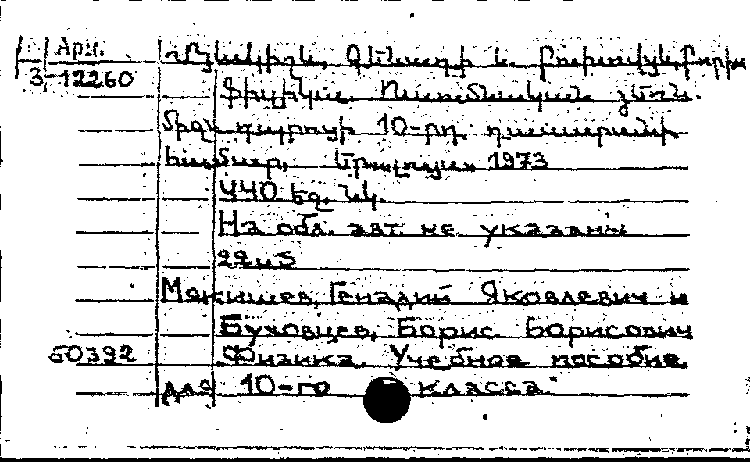 Арм.
3-12260
Մյակիշև, Գենադի և Բուխովցև, Բորիս
Ֆիզիկա. Ուսումնական ձեռն.
միջն. դպրոցի 10-րդ դասարանի
համար. Երևան, 1973
440 էջ. նկ.
На обл. авт. не указаны
Мякишев, Генадий Яковлевич и
Буховцев, Борис Борисович
50392 Физика. Учебное пособие
для 10-го класса.